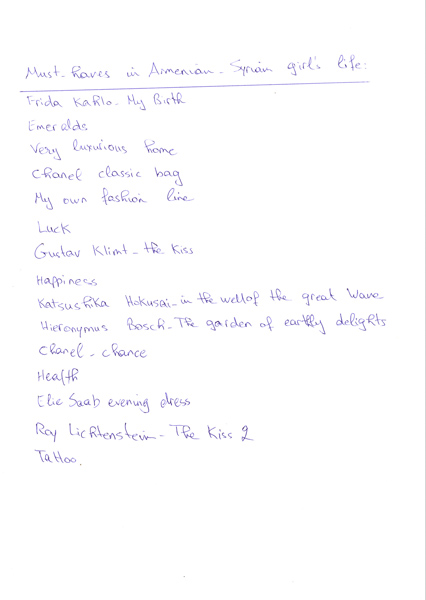 Must-haves in Armenian-Syrian girl's life:
Frida Kahlo - My Birth
Emeralds
Very luxurious home
Chanel classic bag
My own fashion line
Luck
Gustav Klimt - the Kiss
Happiness
Katsushika Hokusai - in the well of the great Wave
Hieronymus Bosch - The garden of earthly delights
Chanel - chance
Health
Elie Saab evening dress
Roy Lichtenstein - The Kiss 2
Tattoo.